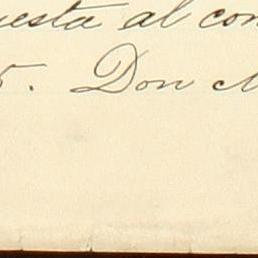 uesta al con
5. Don M